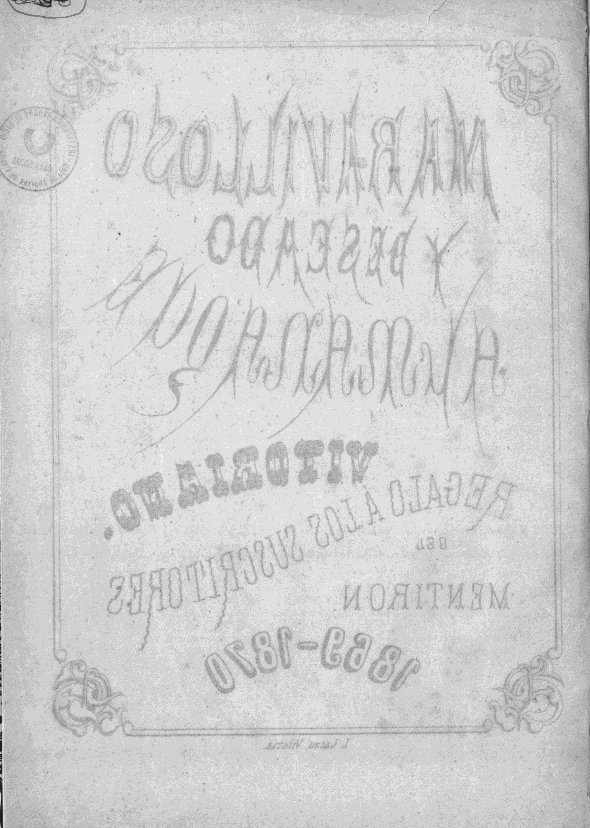 MARAVILLOSO
Y DESEADO
ALMANAQUE
VITORIANO.
REGALO Á LOS SUSCRITORES
DEL
MENTIRON
1869-1870